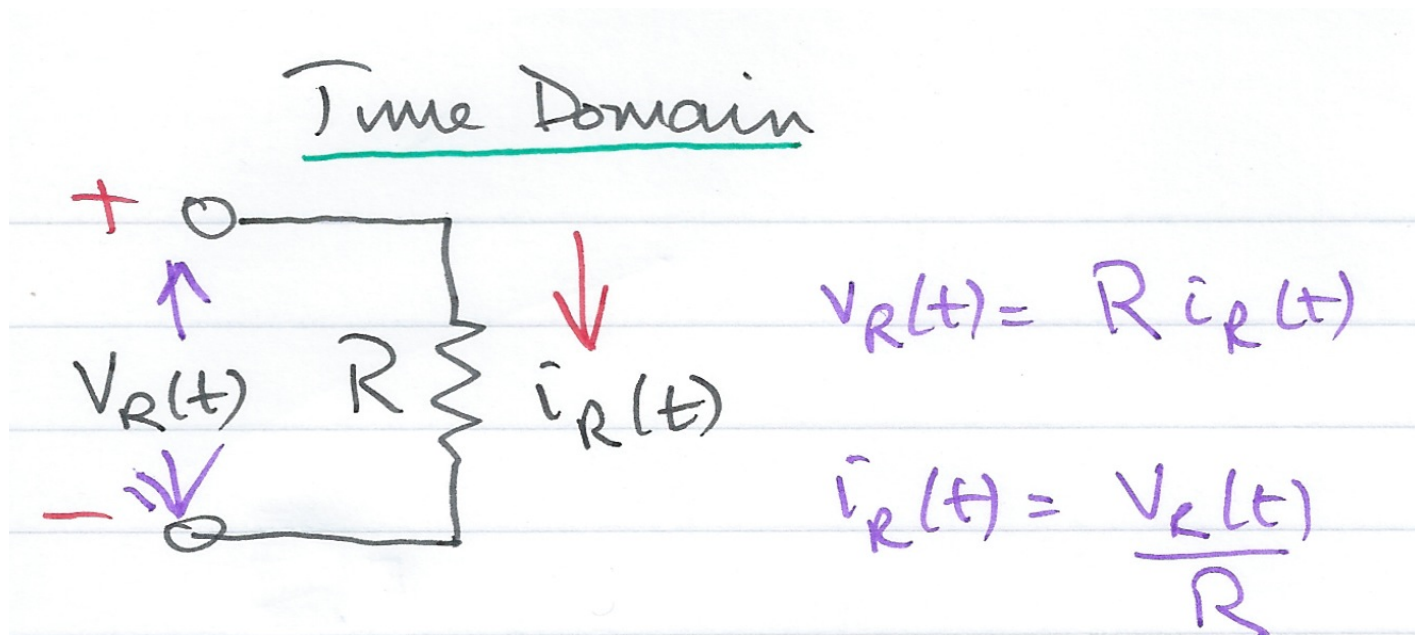 Time Domain
+
V_R(t)
R
i_R(t)
−
v_R(t) = R i_R(t)
i_R(t) = V_R(t) / R